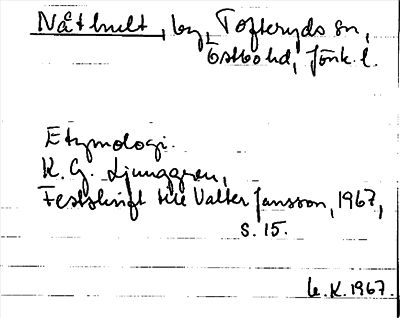 Nåthult, by, Tofteryds sn,
Östbo hd, Jönk. l.
Etymologi.
K. G. Ljunggren,
Festskrift till Valter Jansson, 1967,
s. 15.
K. 1967.